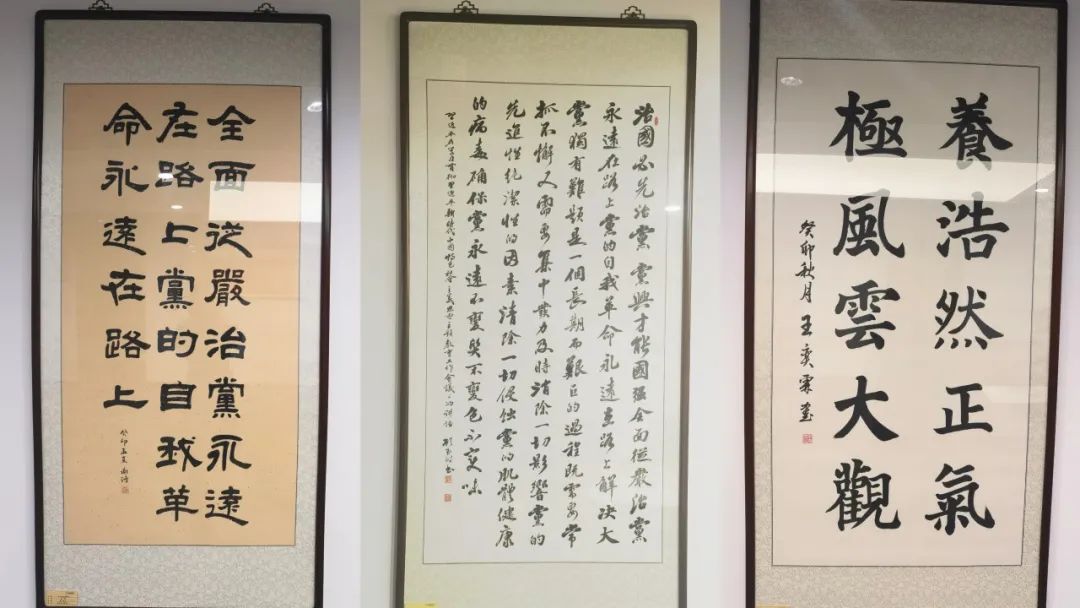 全面從嚴治黨永遠
在路上黨的自我革
命永遠在路上
癸卯
治國必先治黨黨興才能國强全面從嚴治黨
永遠在路上黨的自我革命永遠在路上解决大
黨獨有難題是一個長期而艱巨的過程既需要常
抓不懈又需要集中發力及時消除一切影響黨的
先進性純潔性的因素清除一切侵蝕黨的肌體健康
的病毒確保黨永遠不變質不變色不變味
習近平新時代中國特色社會主義思想主題教育工作會議上的講話
養浩然正氣
極風雲大觀
癸卯秋月王奕霖書